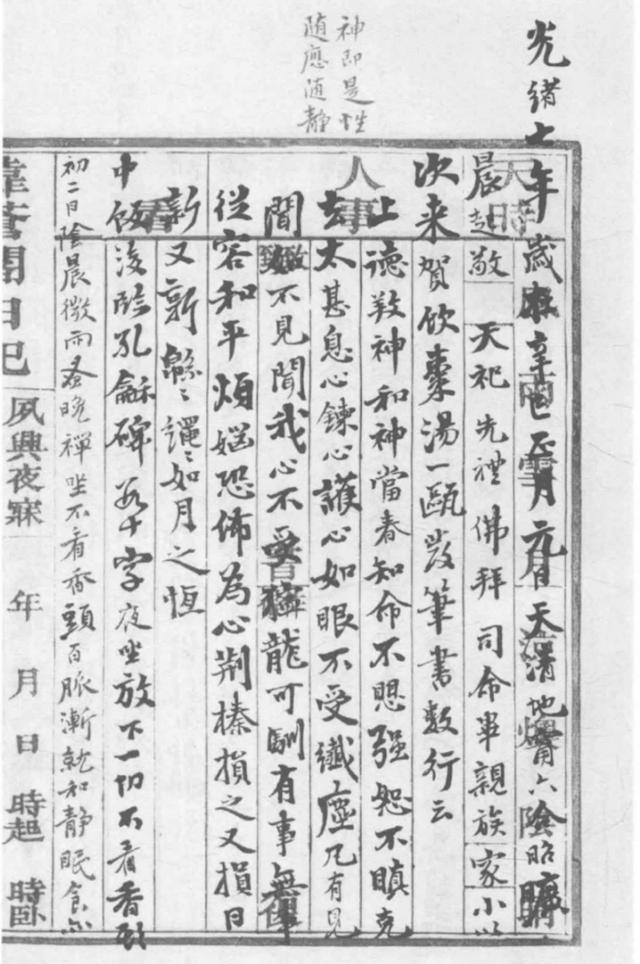 神即是性
随應随静
光绪七年歲在辛巳正月元日天清地寗六陰昭曠
晨起敬天祀先禮佛拜司命畢親族家小以
次来賀飲棗湯一甌發筆書数行云
上德敦神和神當春知命不思强恕不瞋克
去太甚息心鍊心護心如眼不受纖塵凡有見
聞如不見聞我心不受獰龍可馴有事無事
從容和平煩惱恐怖為心荆榛損之又損日
新又新緜緜繩繩如月之恒
中飯後臨孔龢碑若干字夜坐放下一切不看香頭
初二日陰晨微雨蚤晚禪坐不看香頭百脈漸就和静眠食亦
夙興夜寐 年 月 日 時起 時卧